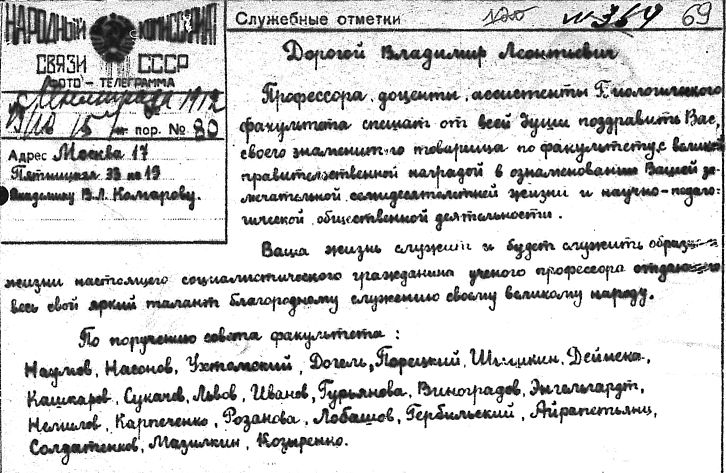 НАРОДНЫЙ КОМИССАРИАТ
СВЯЗИ СССР
ФОТО-ТЕЛЕГРАММА
Служебные отметки
№ 369 69
пор. № 80
Адрес Москва 17
Пятницкая 33 кв 19
Академику В.Л. Комарову.
Дорогой Владимир Леонтиевич
Профессора, доценты, ассистенты Биологического
факультета спешат от всей души поздравить Вас,
своего знаменитого товарища по факультету, с великой
правительственной наградой в ознаменовании Вашей за-
мечательной семидесятилетней жизни и научно-педаго-
гической общественной деятельности.
Ваша жизнь служит и будет служить образцом
жизни настоящего социалистического гражданина ученого профессора отдающего
весь свой яркий талант благородному служению своему великому народу.
По поручению совета факультета:
Наумов, Насонов, Ухтомский, Догель, Порецкий, Шишкин, Дейнека,
Кашкаров, Сукачев, Львов, Иванов, Гурьянова, Виноградов, Энгельгардт,
Немилов, Карпеченко, Розанова, Лобашов, Гербильский, Айрапетьянц,
Солдатенков, Мазилкин, Козыренко.